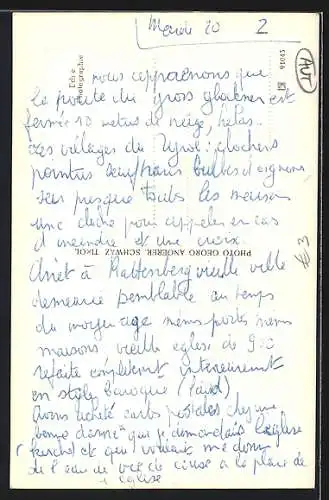 Mardi 20 2
Echte Photographie
91045
AUT
nous apprenons que
la route du gross glockner est
fermée 10 metres de neige, hélas.
Les villages du Tyrol: clochers
pointus bulbes d'oignons
sur presque touts les maisons
une cloche pour appeler en cas
d'incendie et une croix.
PHOTO GEORG ANGERER, SCHWAZ TIROL
€3
Arrêt à Rattenberg vieille ville
demeurée semblable au temps
du moyen age mêmes portes mêmes
maisons vieille eglise de 900
refaite complètement interieurement
en style baroque (laid)
Avons acheté cartes postales chez une
bonne dame que je demandais l'eglise
(kirche) et qui voulait me donner
de l'eau de vie de cerise à la place de
l'eglise